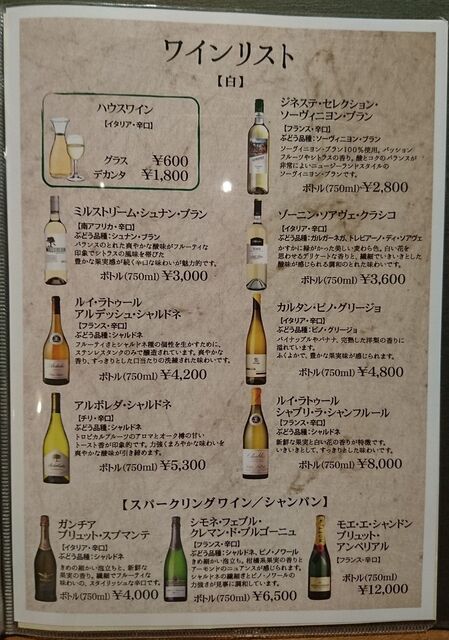 ワインリスト
【白】
ハウスワイン
【イタリア・辛口】
グラス ¥600
デカンタ ¥1,800
ジネステ・セレクション・
ソーヴィニヨン・ブラン
【フランス・辛口】
ぶどう品種：ソーヴィニヨン・ブラン
ソーヴィニヨン・ブラン100%使用。パッション
フルーツやシトラスの香り。酸とコクのバランスが
非常によいニュージーランドスタイルの
ソーヴィニヨン・ブランです。
ボトル(750ml) ¥2,800
ミルストリーム・シュナン・ブラン
【南アフリカ・辛口】
ぶどう品種：シュナン・ブラン
バランスのとれた爽やかな酸味がフルーティな
印象でシトラスの風味を帯びた
豊かな果実感が続く辛口な味わいが魅力的です。
ボトル(750ml) ¥3,000
ゾーニン・ソアヴェ・クラシコ
【イタリア・辛口】
ぶどう品種：ガルガーネガ、トレビアーノ・ディ・ソアヴェ
かすかに緑がかった美しい麦わら色。白い花を
思わせるデリケートな香りと、繊細でいきいきとした
酸味が感じられる調和のとれた味わいです。
ボトル(750ml) ¥3,600
ルイ・ラトゥール
アルデッシュ・シャルドネ
【フランス・辛口】
ぶどう品種：シャルドネ
フルーティさとシャルドネ種の個性を生かすために、
ステンレスタンクのみで醸造されています。爽やかな
香り、すっきりとした口当たりの洗練された味わいです。
ボトル(750ml) ¥4,200
カルタン・ピノ・グリージョ
【イタリア・辛口】
ぶどう品種：ピノ・グリージョ
パイナップルやバナナ、完熟した洋梨の香りに
溢れています。
ふくよかで、豊かな果実味が感じられます。
ボトル(750ml) ¥4,800
アルボレダ・シャルドネ
【チリ・辛口】
ぶどう品種：シャルドネ
トロピカルフルーツのアロマとオーク樽の甘い
トースト香が印象的です。力強くまろやかな味わいを
爽やかな酸味が引き締めます。
ボトル(750ml) ¥5,300
ルイ・ラトゥール
シャブリ・ラ・シャンフルール
【フランス・辛口】
ぶどう品種：シャルドネ
新鮮な果実と白い花の香りが特徴です。
いきいきとして、すっきりとした味わいです。
ボトル(750ml) ¥8,000
【スパークリングワイン／シャンパン】
ガンチア
ブリュット・スプマンテ
【イタリア・辛口】
ぶどう品種：シャルドネ
きめの細かい泡立ちと、新鮮な
果実の香り。繊細でフルーティな
味わいの、スタイリッシュな辛口です。
ボトル(750ml) ¥4,000
シモネ・フェブル・
クレマン・ド・ブルゴーニュ
【フランス・辛口】
ぶどう品種：シャルドネ、ピノ・ノワール
きめ細かい泡立ち。柑橘系果実の香りと
アーモンドのニュアンスが感じられます。
シャルドネの繊細さとピノ・ノワールの
力強さが見事に調和しています。
ボトル(750ml) ¥6,500
モエ・エ・シャンドン
ブリュット・
アンペリアル
【フランス・辛口】
ボトル(750ml)
¥12,000